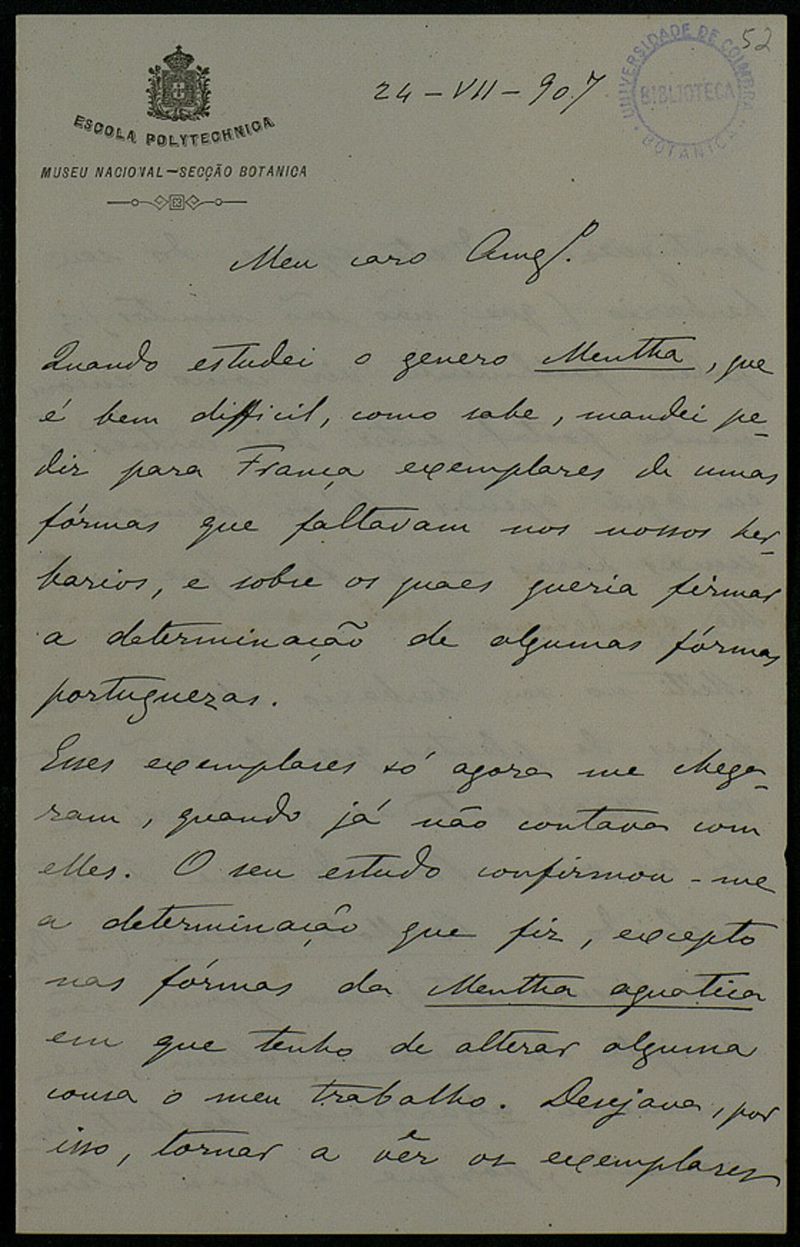 52
24-VII-907
UNIVERSIDADE DE COIMBRA
BIBLIOTECA
BOTANICA
ESCOLA POLYTECHNICA
MUSEU NACIONAL-SECÇÃO BOTANICA
Meu caro Amgº.
Quando estudei o genero Mentha, que
é bem difficil, como sabe, mandei pe-
dir para França exemplares de umas
fórmas que faltavam nos nossos her-
barios, e sobre os quaes queria firmar
a determinação de algumas fórmas
portuguezas.
Esses exemplares só agora me chega-
ram, quando já não contava com
elles. O seu estudo confirmou-me
a determinação que fiz, excepto
nas fórmas da Mentha aquatica
em que tenho de alterar alguma
cousa o meu trabalho. Desejava, por
isso, tornar a vêr os exemplares